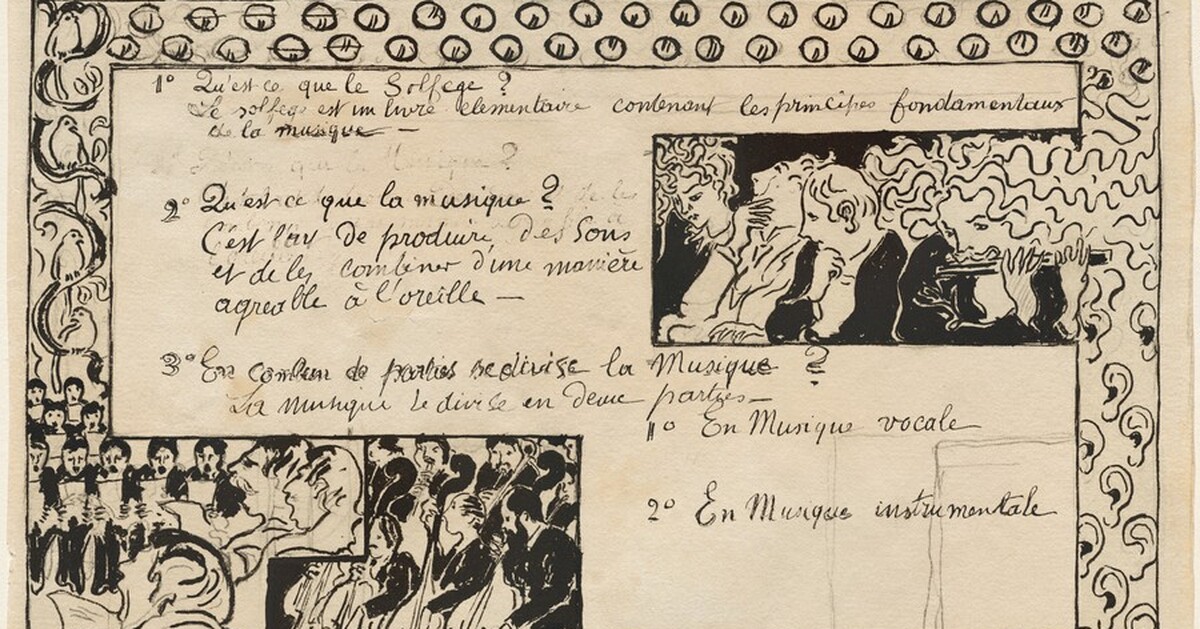 1° Qu'est ce que le Solfege ?
Le solfege est un livre elementaire contenant les principes fondamentaux
de la musique —
que la Musique ?
2° Qu'est ce que la musique ?
C'est l'art de produire des Sons
et de les combiner d'une manière
agreable à l'oreille —
3° En combien de parties se divise la Musique ?
La musique se divise en deux parties —
1° En Musique vocale
2° En Musique instrumentale